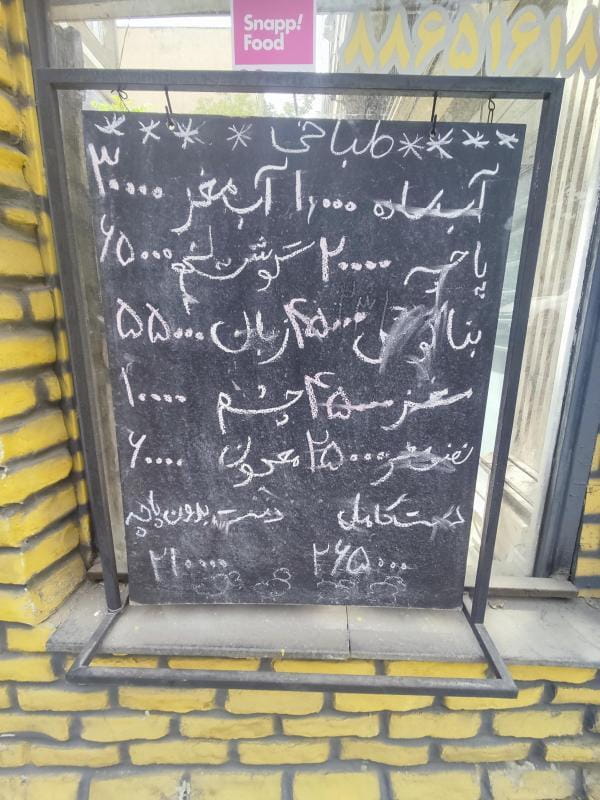 Snapp!
Food
۸۸۶۵۱۶۱۸
طباخی
آب ساده ۱۰,۰۰۰ آب مغز ۳۰۰۰۰
پاچه ۲۰۰۰۰ گوش لخم ۶۵۰۰۰
بناگوش ۴۵۰۰۰ زبان ۵۵۰۰۰
مغز ۴۵۰۰۰ چشم ۱۰۰۰۰
نصف مغز ۲۵۰۰۰ معجون ۶۰۰۰۰
دست کامل دست بدون پاچه
۲۶۵۰۰۰ ۲۱۰۰۰۰